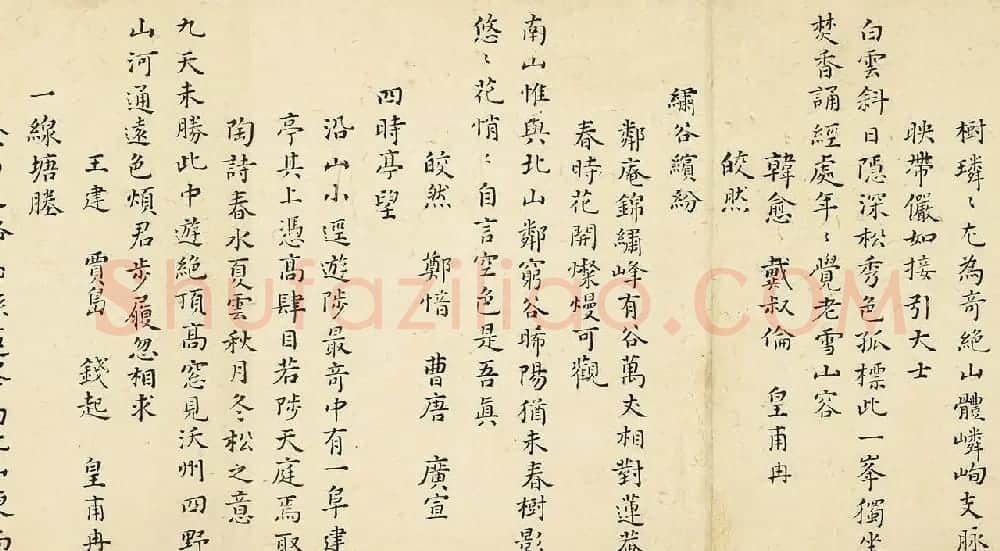 樹璘〻尤為奇絕山體嶙峋支脈
映帶儼如接引大士
白雲斜日隱深松秀色孤標此一峯獨坐
焚香誦經處年〻覺老雪山容
韓愈 戴叔倫 皇甫冉
皎然
繡谷繽紛
鄰庵錦繡峰有谷萬丈相對蓮
春時花開燦熳可觀
南山惟與北山鄰窮谷晞陽猶未春樹影
悠〻花悄〻自言空色是吾眞
皎然 鄭愔 曹唐 廣宣
四時亭望
沿山小逕遊陟最奇中有一阜建
亭其上憑高肆目若陟天庭焉取
陶詩春水夏雲秋月冬松之意
九天未勝此中遊絕頂高窓見沃州四野
山河通遠色煩君步屧忽相求
王建 賈島 錢起 皇甫冉
一線塘塍
Shufaziliao.com